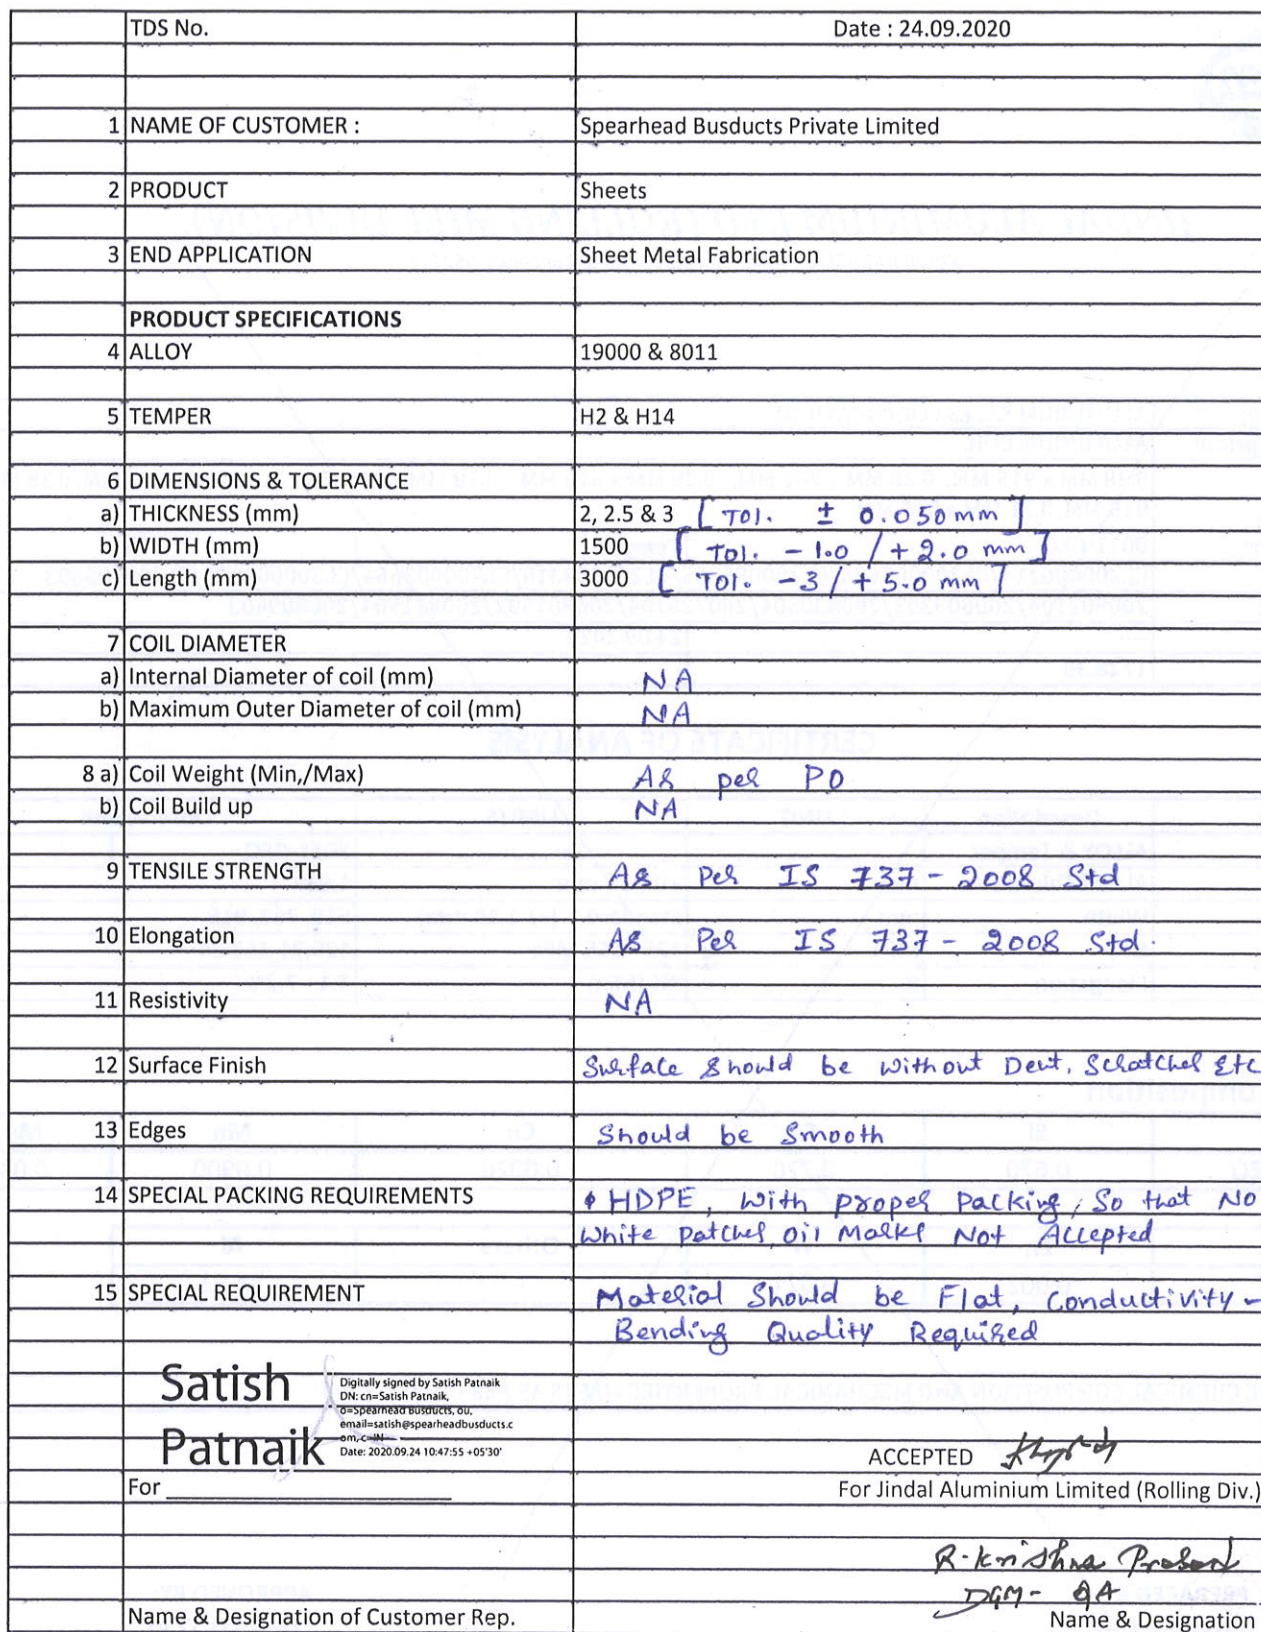 TDS No. Date : 24.09.2020
1 NAME OF CUSTOMER : Spearhead Busducts Private Limited
2 PRODUCT Sheets
3 END APPLICATION Sheet Metal Fabrication
PRODUCT SPECIFICATIONS
4 ALLOY 19000 & 8011
5 TEMPER H2 & H14
6 DIMENSIONS & TOLERANCE
a) THICKNESS (mm) 2, 2.5 & 3 [ Tol. ± 0.050 mm ]
b) WIDTH (mm) 1500 [ Tol. - 1.0 / + 2.0 mm ]
c) Length (mm) 3000 [ Tol. - 3 / + 5.0 mm ]
7 COIL DIAMETER
a) Internal Diameter of coil (mm) NA
b) Maximum Outer Diameter of coil (mm) NA
8 a) Coil Weight (Min,/Max) As per PO
b) Coil Build up NA
9 TENSILE STRENGTH As Per IS 737 - 2008 Std
10 Elongation As Per IS 737 - 2008 Std.
11 Resistivity NA
12 Surface Finish Surface Should be without Dent, Scratches Etc
13 Edges Should be Smooth
14 SPECIAL PACKING REQUIREMENTS HDPE, With proper Packing, So that NO
White Patches, Oil Marks Not Accepted
15 SPECIAL REQUIREMENT Material Should be Flat, Conductivity -
Bending Quality Required
Satish
Patnaik
Digitally signed by Satish Patnaik
DN: cn=Satish Patnaik,
o=Spearhead Busducts, ou,
email=satish@spearheadbusducts.c
om, c=IN
Date: 2020.09.24 10:47:55 +05'30'
ACCEPTED
For
For Jindal Aluminium Limited (Rolling Div.)
R. Krishna Prasad
DGM - QA
Name & Designation of Customer Rep. Name & Designation
CERTIFICATE OF ANALYSIS